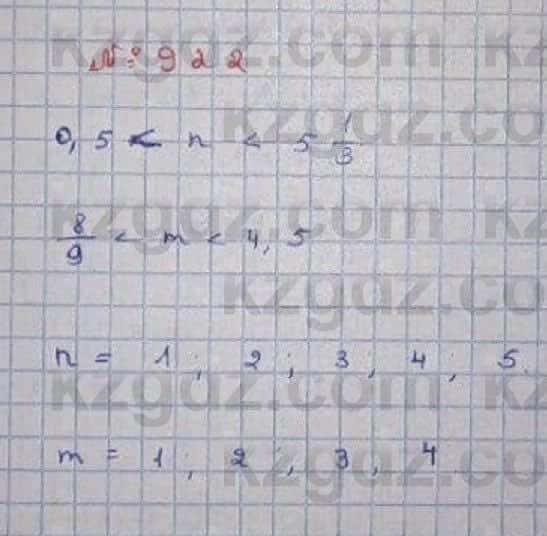 kzgdz.com kzgdz.com
№: 9 2 2
kzgdz.com
0,5 < n < 5 1/3
kzgdz.com
8/9 < m < 4,5
kzgdz.com
n = 1; 2; 3; 4; 5.
kzgdz.com
m = 1; 2; 3; 4
kzgdz.com